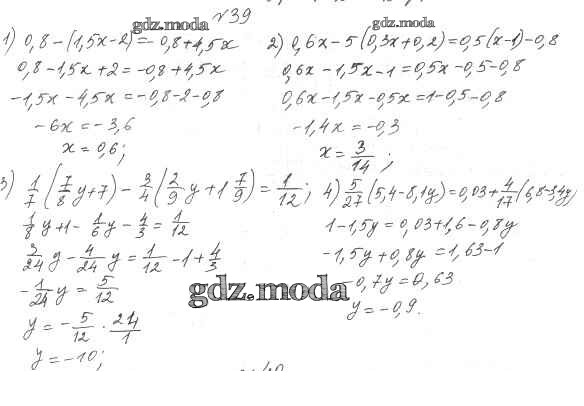 gdz.moda
№39
gdz.moda
1) 0,8-(1,5x-2)=-0,8+4,5x
0,8-1,5x+2=-0,8+4,5x
-1,5x-4,5x=-0,8-2-0,8
-6x=-3,6
x=0,6;
2) 0,6x-5(0,3x+0,2)=0,5(x-1)-0,8
0,6x-1,5x-1=0,5x-0,5-0,8
0,6x-1,5x-0,5x=1-0,5-0,8
-1,4x=-0,3
x=3/14;
3) 1/7(7/8y+7)-3/4(2/9y+1 7/9)=1/12;
1/8y+1-1/6y-4/3=1/12
3/24y-4/24y=1/12-1+4/3
-1/24y=5/12
y=-5/12·24/1
y=-10;
4) 5/27(5,4-8,1y)=0,03+4/17(6,8-3,4y)
1-1,5y=0,03+1,6-0,8y
-1,5y+0,8y=1,63-1
-0,7y=0,63
y=-0,9.
gdz.moda